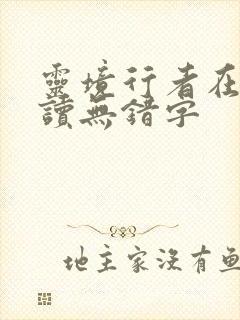 靈境行者在
讀無錯字
地主家沒有魚